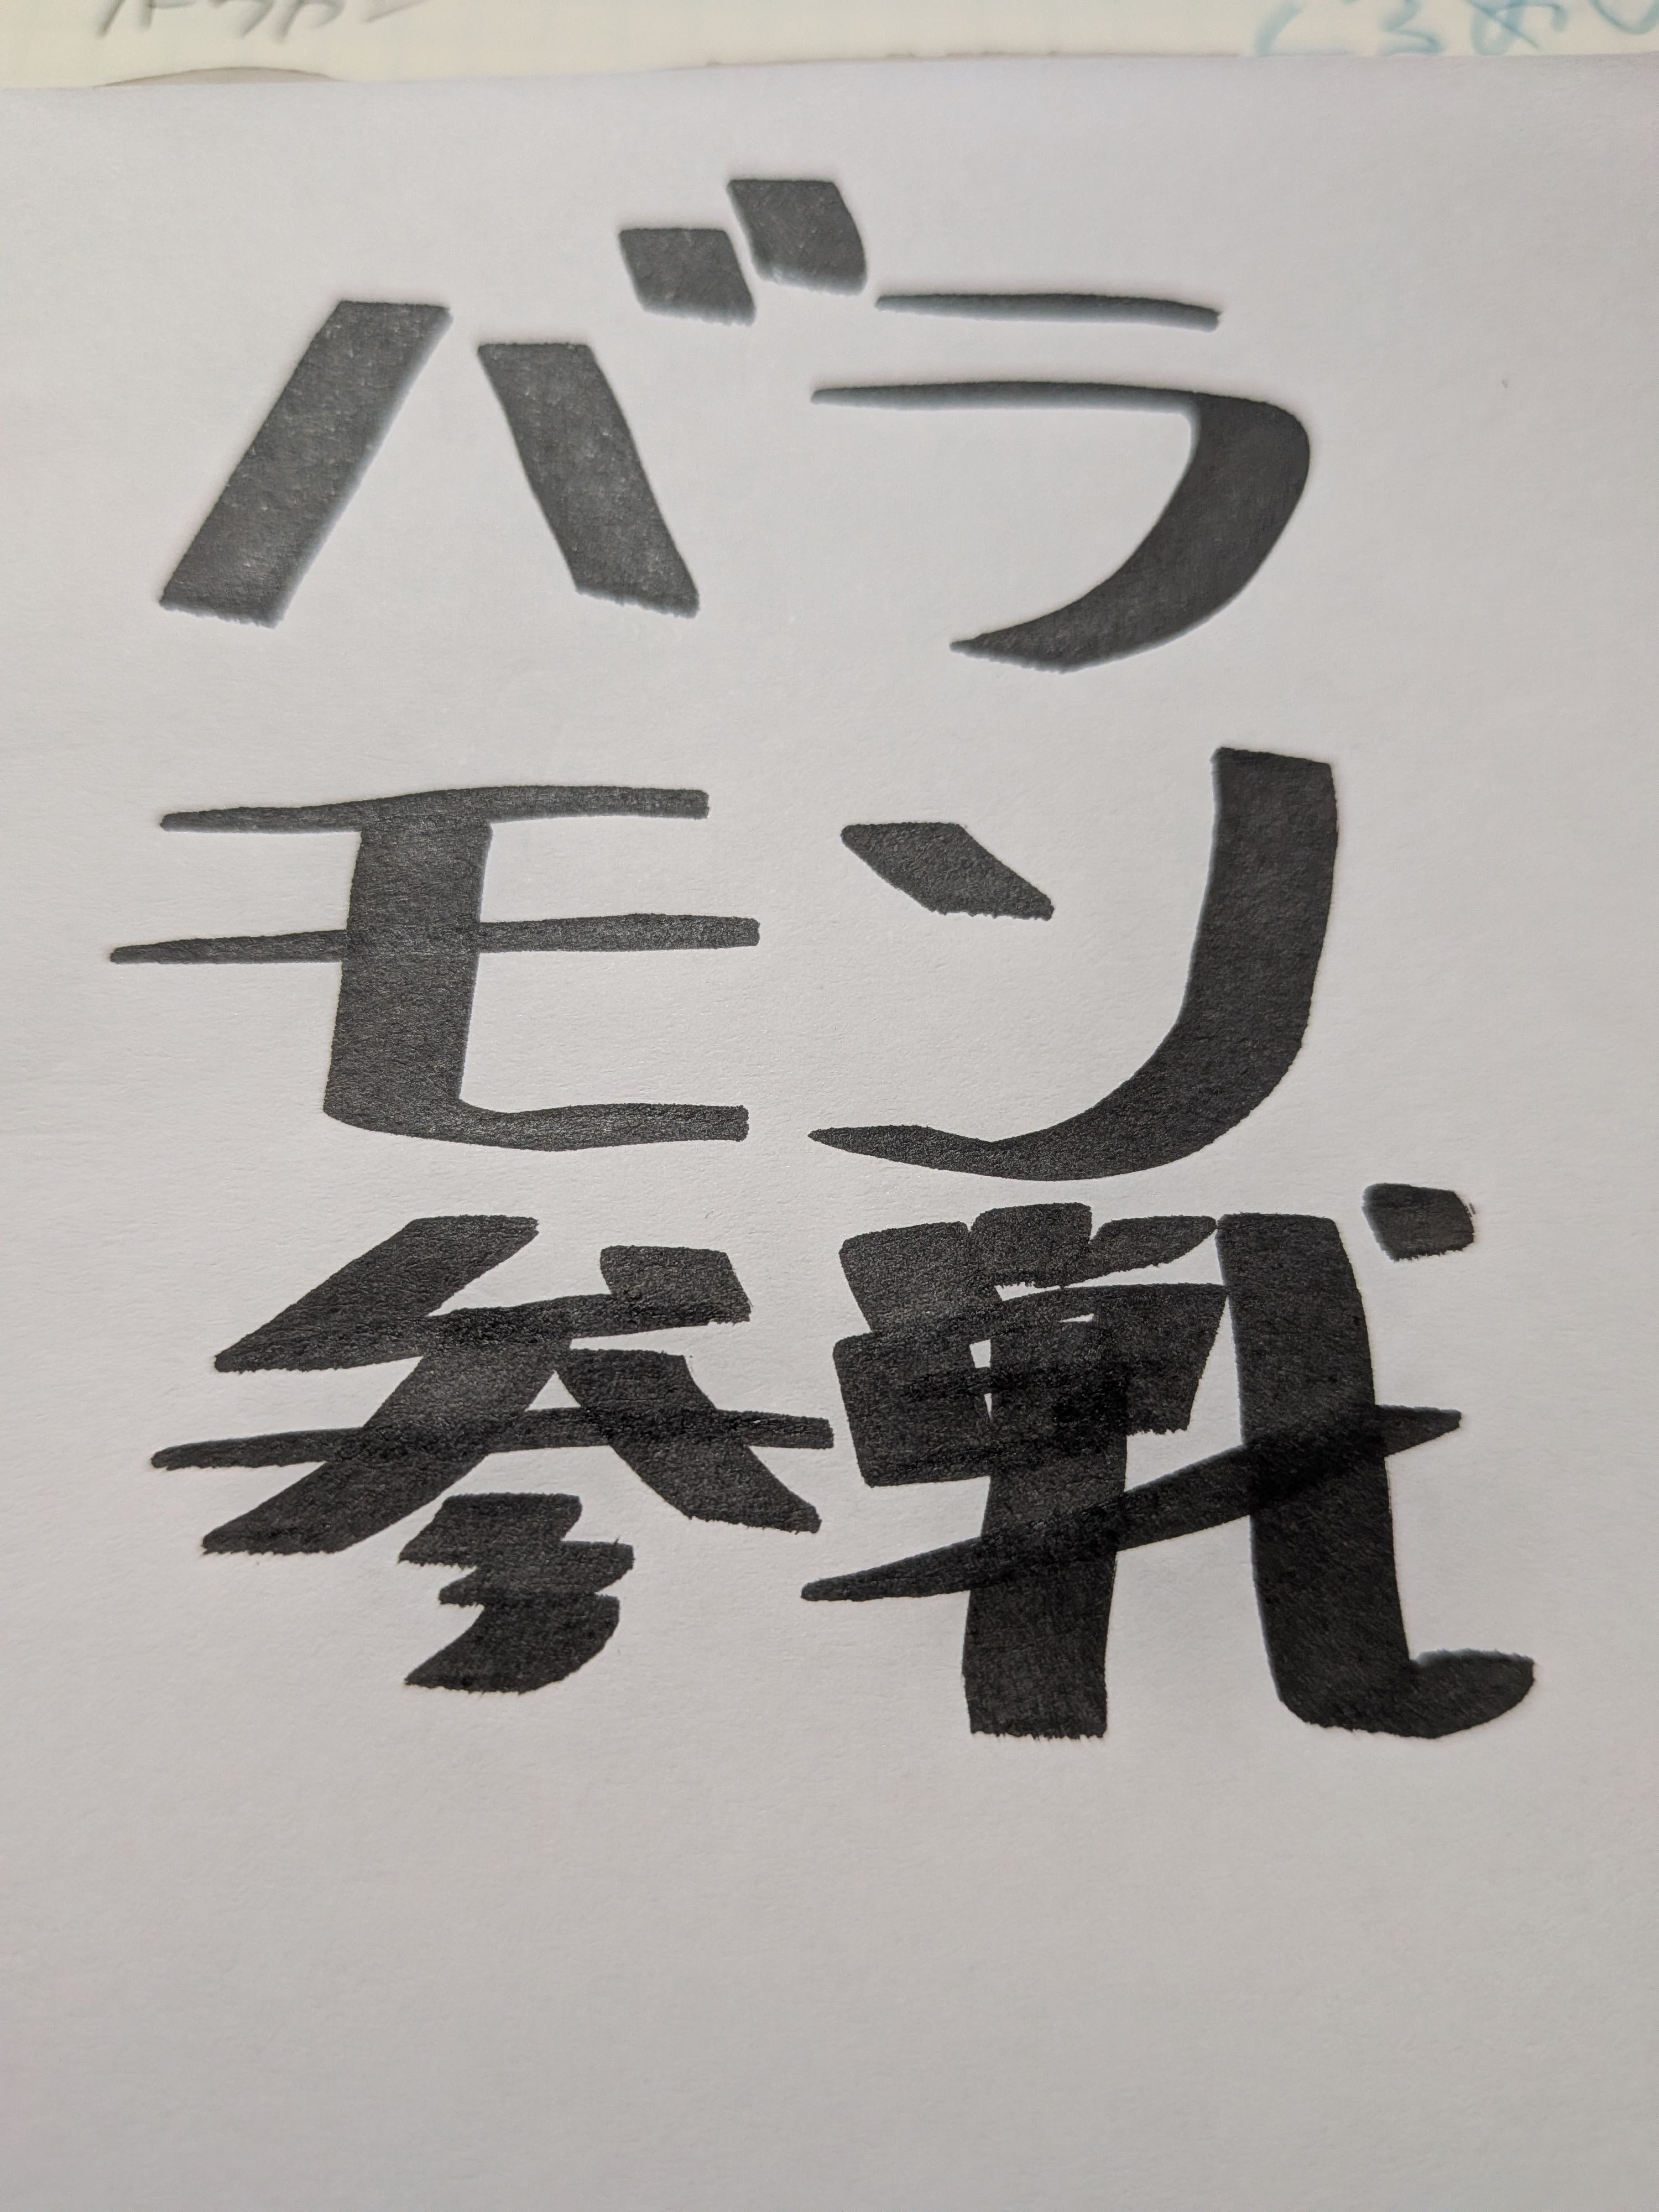 バラ
モン
参戦